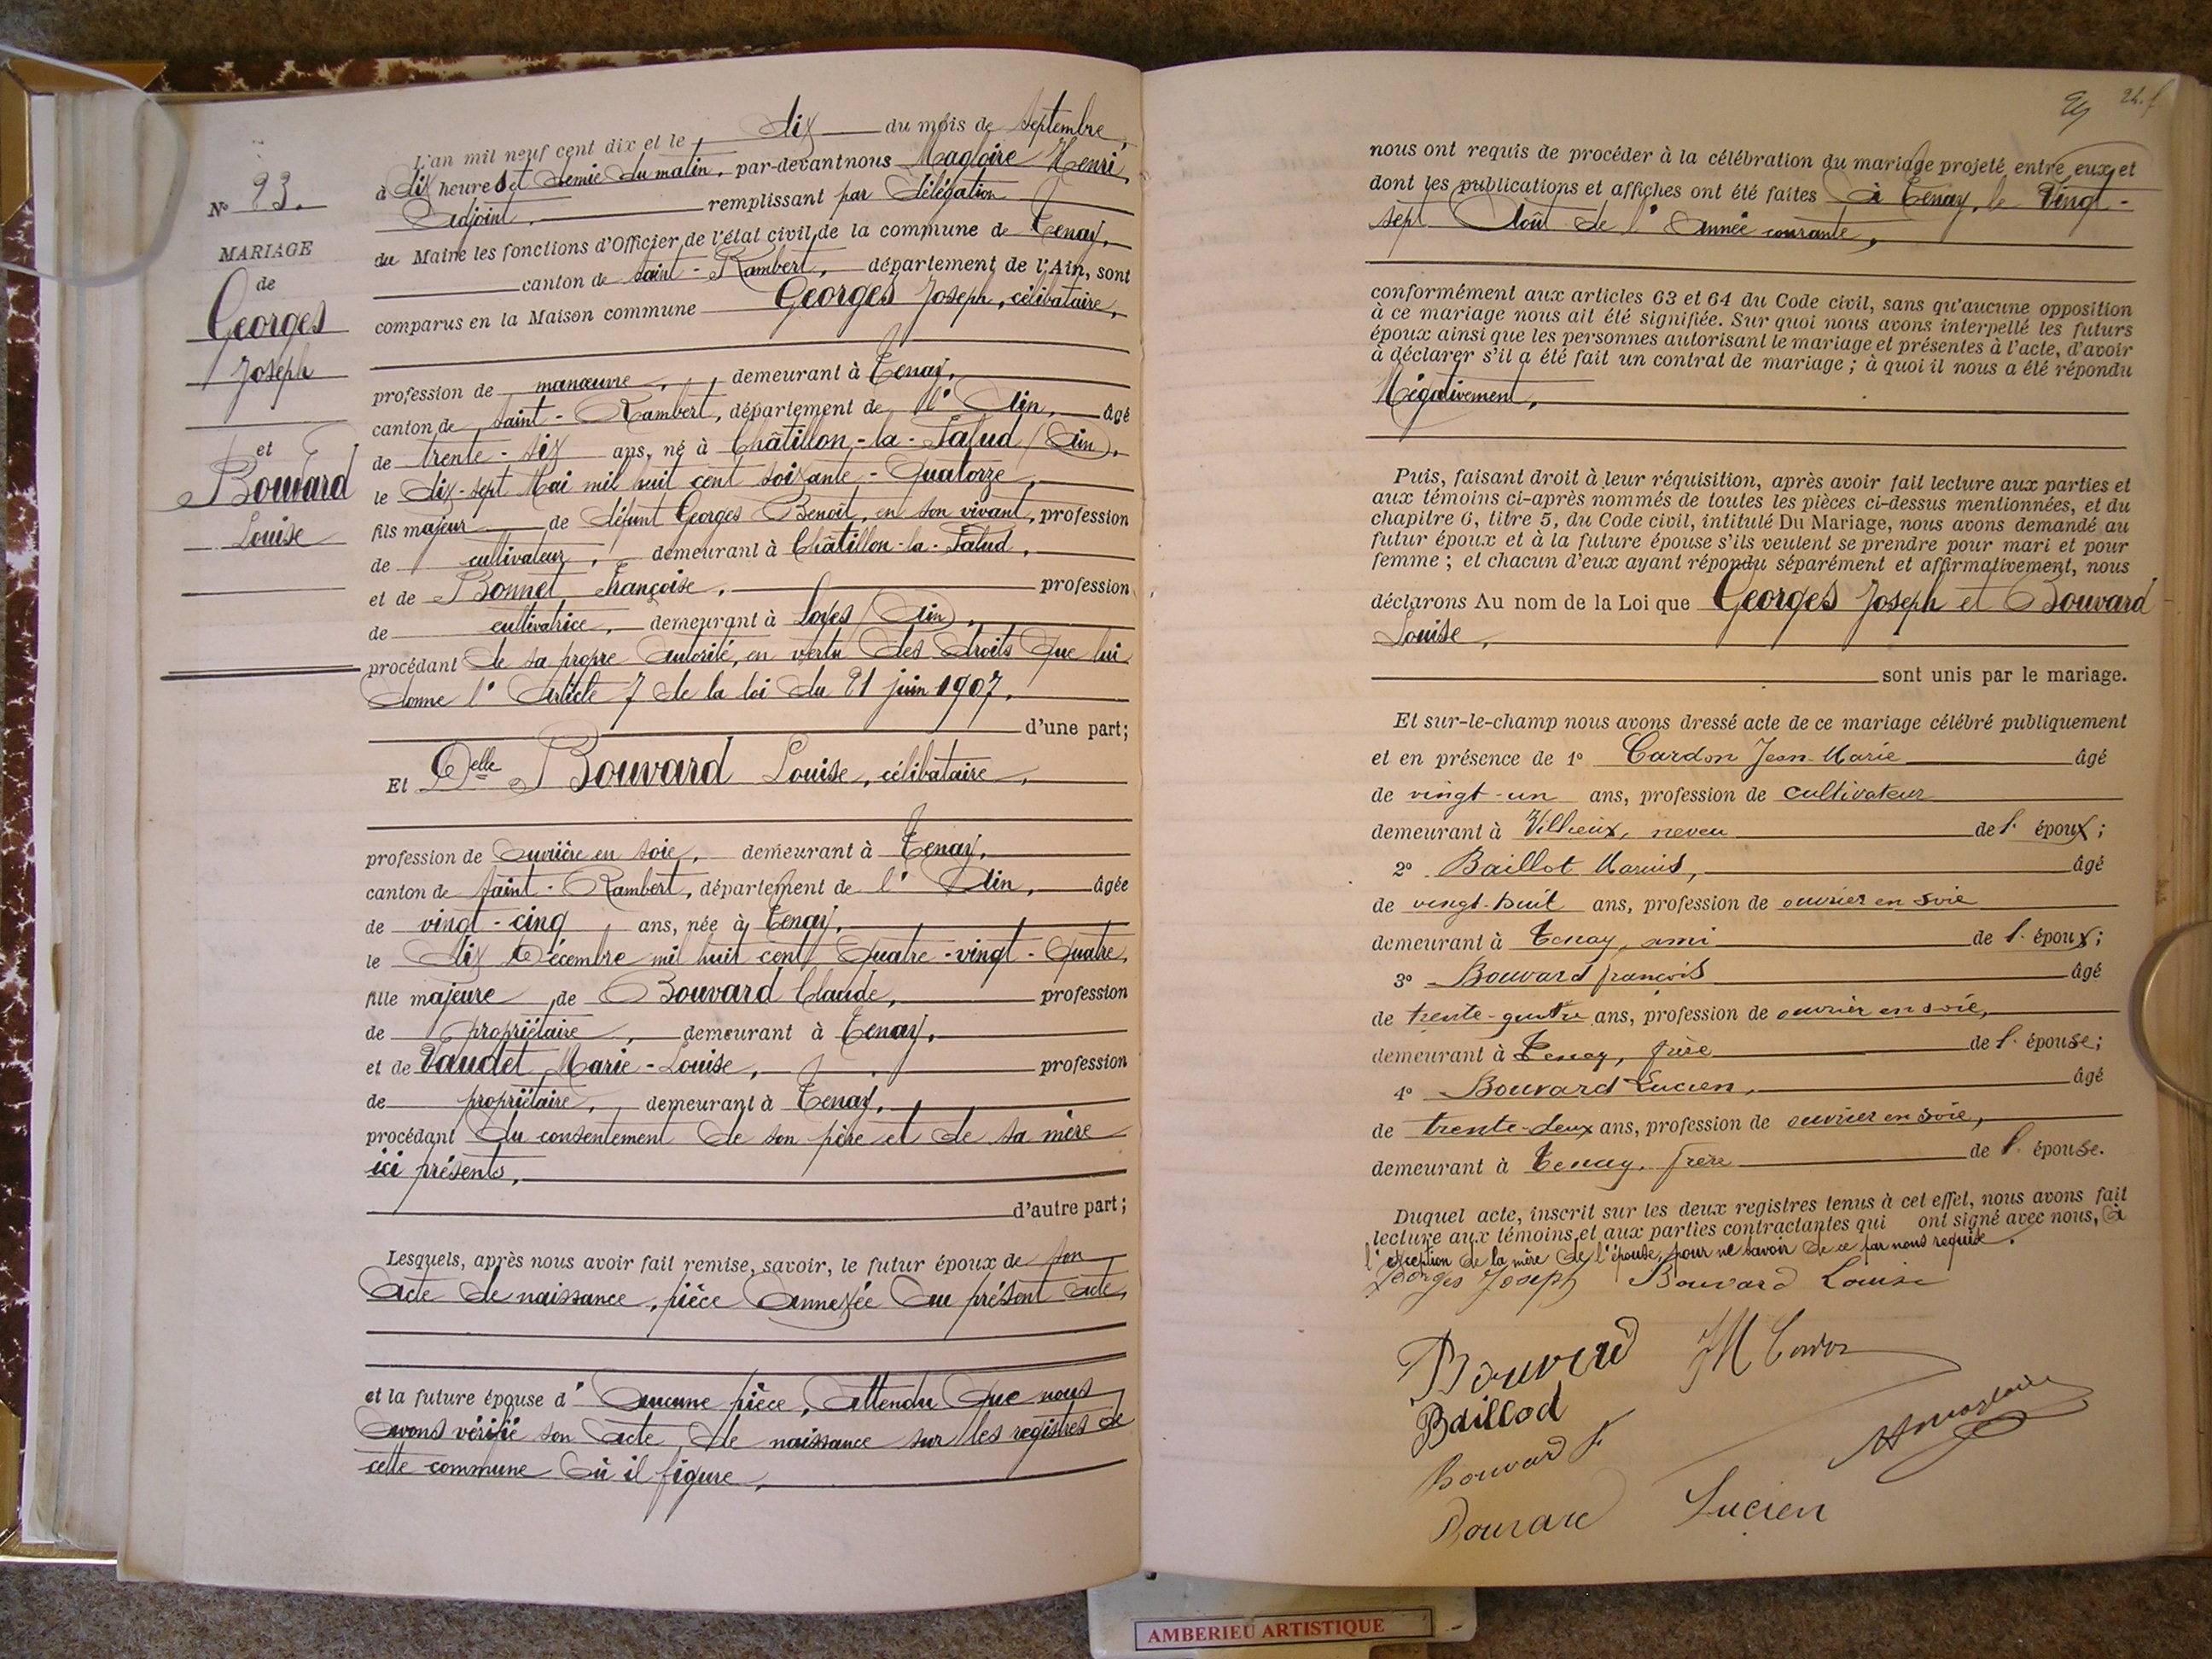 L'an mil neuf cent dix et le dix du mois de septembre,
à dix heures et demie du matin, par-devant nous Magloire Henri,
Adjoint, remplissant par délégation
du Maire les fonctions d'Officier de l'état civil de la commune de Tenay,
canton de saint-Rambert, département de l'Ain, sont
comparus en la Maison commune Georges Joseph, célibataire,
N° 23.
MARIAGE
de
Georges
Joseph
et
Bouvard
Louise
profession de manœuvre, demeurant à Tenay,
canton de saint-Rambert, département de l'Ain, âgé
de trente-six ans, né à Châtillon-la-Palud (Ain),
le dix-sept Mai mil huit cent soixante-Quatorze,
fils majeur de défunt Georges Benoit, en son vivant, profession
de cultivateur, demeurant à Châtillon-la-Palud,
et de Bonnet Françoise, profession
de cultivatrice, demeurant à Loyes (Ain),
procédant de sa propre autorité, en vertu des droits que lui
donne l'Article 7 de la loi du 21 juin 1907,
d'une part;
Et Delle Bouvard Louise, célibataire,
profession de Ouvrière en soie, demeurant à Tenay,
canton de saint-Rambert, département de l'Ain, âgée
de vingt-cinq ans, née à Tenay,
le dix Décembre mil huit cent Quatre-vingt-Quatre,
fille majeure de Bouvard Claude, profession
de propriétaire, demeurant à Tenay,
et de Vaudet Marie-Louise, profession
de propriétaire, demeurant à Tenay,
procédant du consentement de son père et de sa mère
ici présents,
d'autre part;
Lesquels, après nous avoir fait remise, savoir, le futur époux de son
Acte de naissance, pièce Annexée Au présent acte,
et la future épouse d'Aucune pièce, Attendu Que nous
Avons vérifié son Acte de naissance sur les registres de
cette commune Où il figure,
24. f
nous ont requis de procéder à la célébration du mariage projeté entre eux et
dont les publications et affiches ont été faites à Tenay, le Vingt-
sept Août de l'Année courante,
conformément aux articles 63 et 64 du Code civil, sans qu'aucune opposition
à ce mariage nous ait été signifiée. Sur quoi nous avons interpellé les futurs
époux ainsi que les personnes autorisant le mariage et présentes à l'acte, d'avoir
à déclarer s'il a été fait un contrat de mariage; à quoi il nous a été répondu
Négativement,
Puis, faisant droit à leur réquisition, après avoir fait lecture aux parties et
aux témoins ci-après nommés de toutes les pièces ci-dessus mentionnées, et du
chapitre 6, titre 5, du Code civil, intitulé Du Mariage, nous avons demandé au
futur époux et à la future épouse s'ils veulent se prendre pour mari et pour
femme; et chacun d'eux ayant répondu séparément et affirmativement, nous
déclarons Au nom de la Loi que Georges Joseph et Bouvard
Louise,
sont unis par le mariage.
Et sur-le-champ nous avons dressé acte de ce mariage célébré publiquement
et en présence de 1° Cardon Jean-Marie âgé
de vingt-un ans, profession de cultivateur
demeurant à Villieux, neveu de l'époux;
2° Baillot Marius, âgé
de vingt-huit ans, profession de ouvrier en soie
demeurant à Tenay, ami de l'époux;
3° Bouvard françois âgé
de trente-quatre ans, profession de ouvrier en soie,
demeurant à Tenay, frère de l'épouse;
4° Bouvard Lucien, âgé
de trente-deux ans, profession de ouvrier en soie,
demeurant à Tenay, frère de l'épouse.
Duquel acte, inscrit sur les deux registres tenus à cet effet, nous avons fait
lecture aux témoins et aux parties contractantes qui ont signé avec nous, à
l'exception de la mère de l'épouse, pour ne savoir de ce par nous requise.
Georges Joseph Bouvard Louise
Bouvard JM Cardon
Baillod
Bouvard F HMagloire
Bouvard Lucien
AMBERIEU ARTISTIQUE